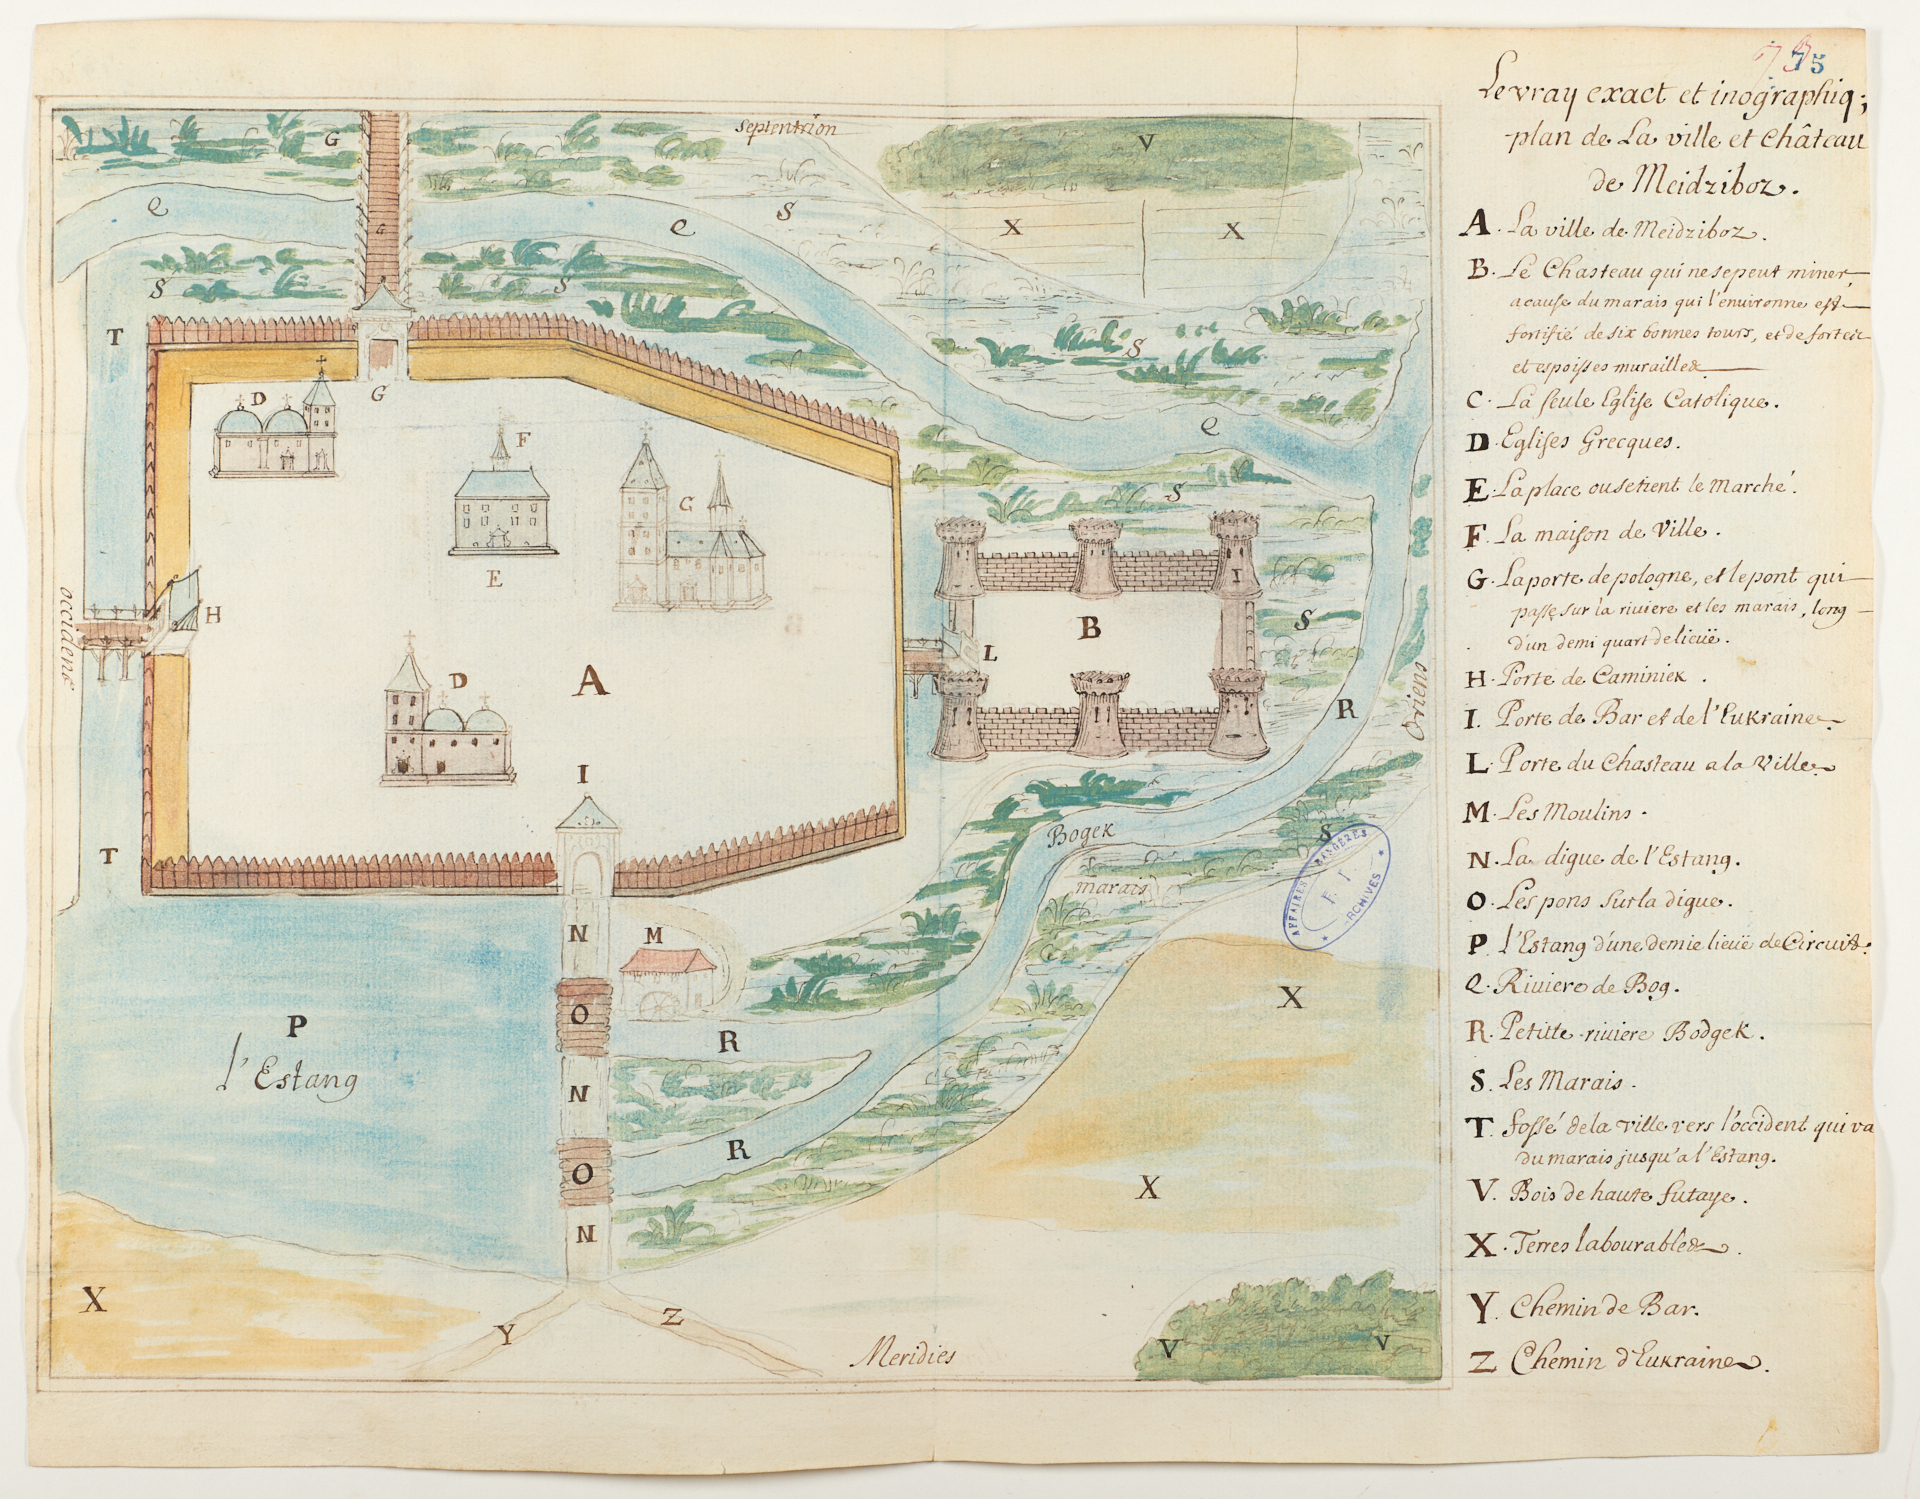 75
Le vray exact et inographiq;
plan de La ville et Château
de Meidziboz.
A. La ville de Meidziboz.
B. Le Chasteau qui ne se peut miner,
a cause du marais qui l'enuironne est
fortifié de six bonnes tours, et de fortes
et espoisses murailles
C. La seule Eglise Catolique.
D. Eglises Grecques.
E. La place ou se tient le Marché.
F. La maison de Ville.
G. La porte de pologne, et le pont qui
passe sur la riviere et les marais, long
d'un demi quart de lieuë.
H. Porte de Caminiek.
I. Porte de Bar et de l'Eukraine
L. Porte du Chasteau a la Ville
M. Les Moulins.
N. La digue de l'Estang.
O. Les pons sur la digue.
P. l'Estang d'une demie lieuë de Circuit.
Q. Riuiere de Bog.
R. Petitte riuiere Bodgek.
S. Les Marais.
T. fossé de la ville vers l'occident qui va
du marais jusqu'a l'Estang.
V. Bois de haute futaye.
X. Terres labourables.
Y. Chemin de Bar.
Z Chemin d'Eukraine.
Septentrion
G
V
Q
S
Q
X
X
G
S
S
T
S
G
D
F
Q
G
S
E
I
H
S
B
occident
L
D
A
R
Oriens
I
Bogek
S
T
marais
AFFAIRES ETRANGERES
ARCHIVES
N
M
X
P
O
R
l'Estang
N
R
O
X
N
X
Z
Y
V
V
Meridies